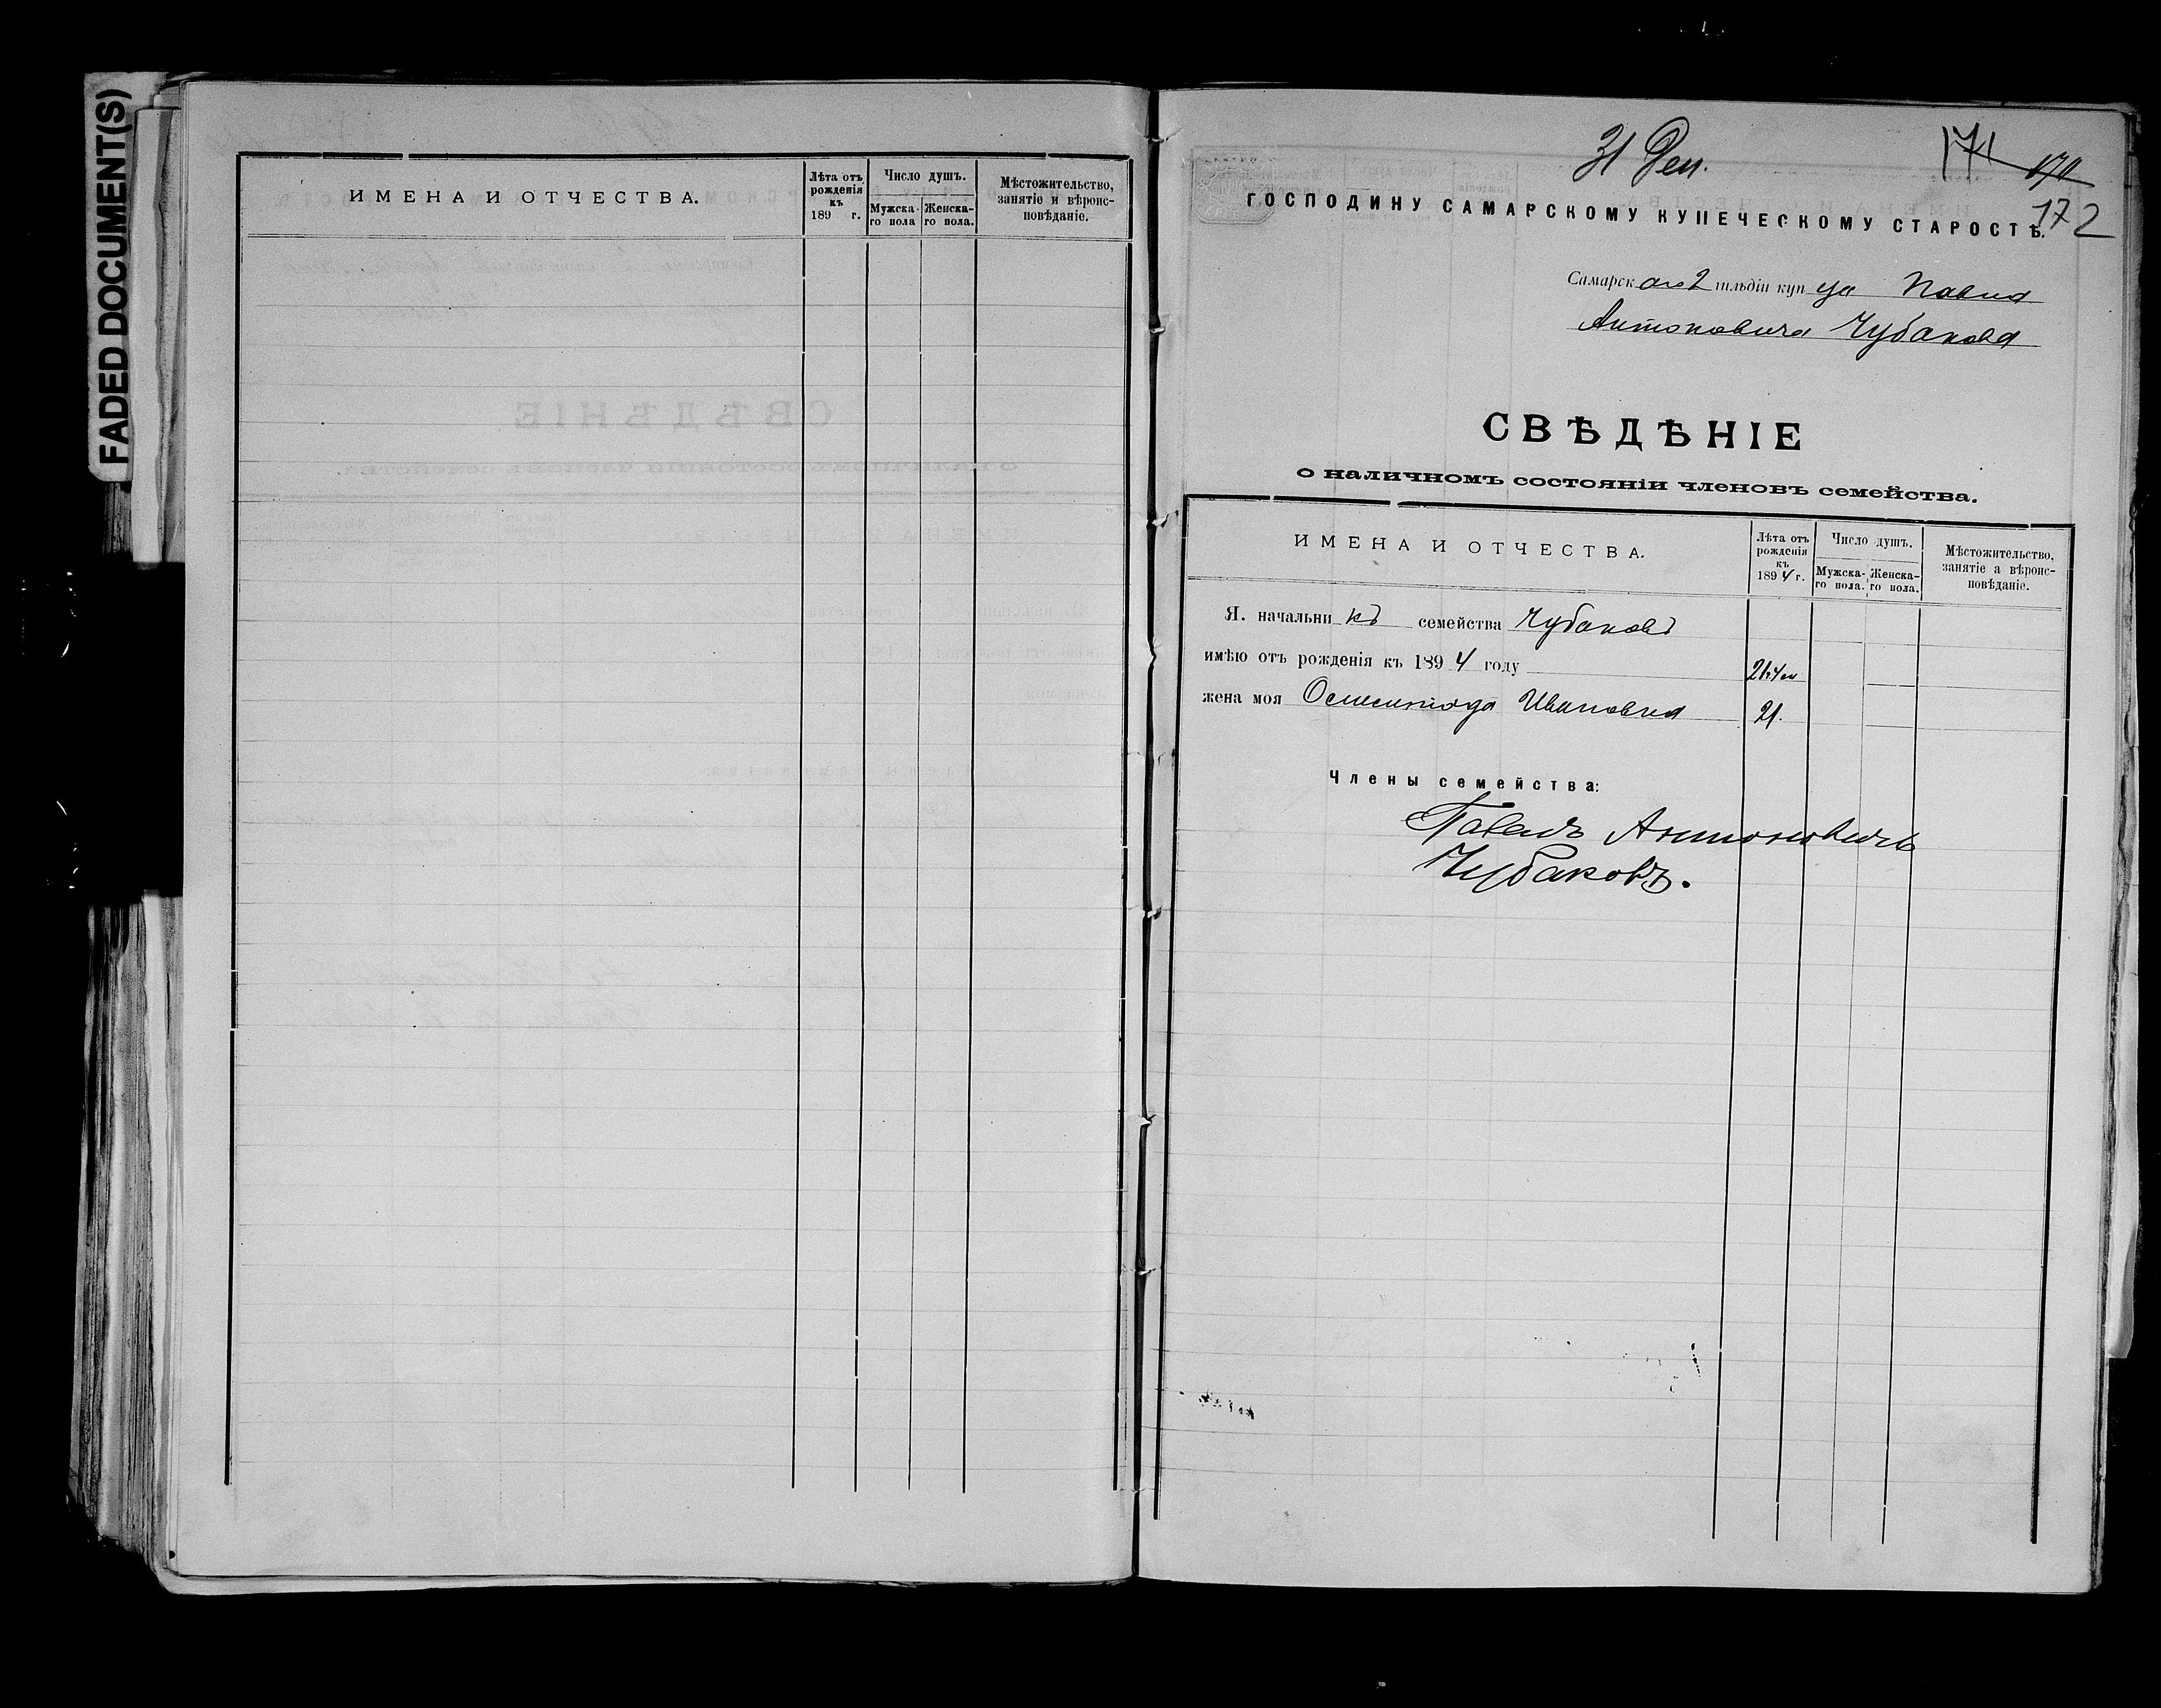 FADED DOCUMENT(S)
ИМЕНА И ОТЧЕСТВА.
Лѣта отъ рожденія къ 189 г.
Число душъ.
Мужска-го пола
Женска-го пола.
Мѣстожительство, занятіе и вѣроис-повѣданіе.
31 Дек.
171
170
172
ГОСПОДИНУ САМАРСКОМУ КУПЕЧЕСКОМУ СТАРОСТѢ.
Самарскаго 2 гильдіи купца Павла
Антоновича Чубакова
СВѢДѢНІЕ
о наличномъ состояніи членовъ семейства.
ИМЕНА И ОТЧЕСТВА.
Лѣта отъ рожденія къ 1894 г.
Число душъ.
Мужска-го пола.
Женска-го пола.
Мѣстожительство, занятіе а вѣроис-повѣданіе.
Я. начальникъ семейства Чубаковъ
имѣю отъ рожденія къ 1894 году
жена моя Ивановна 21.
Члены семейства:
Павелъ Антоновичъ
Чубаковъ.